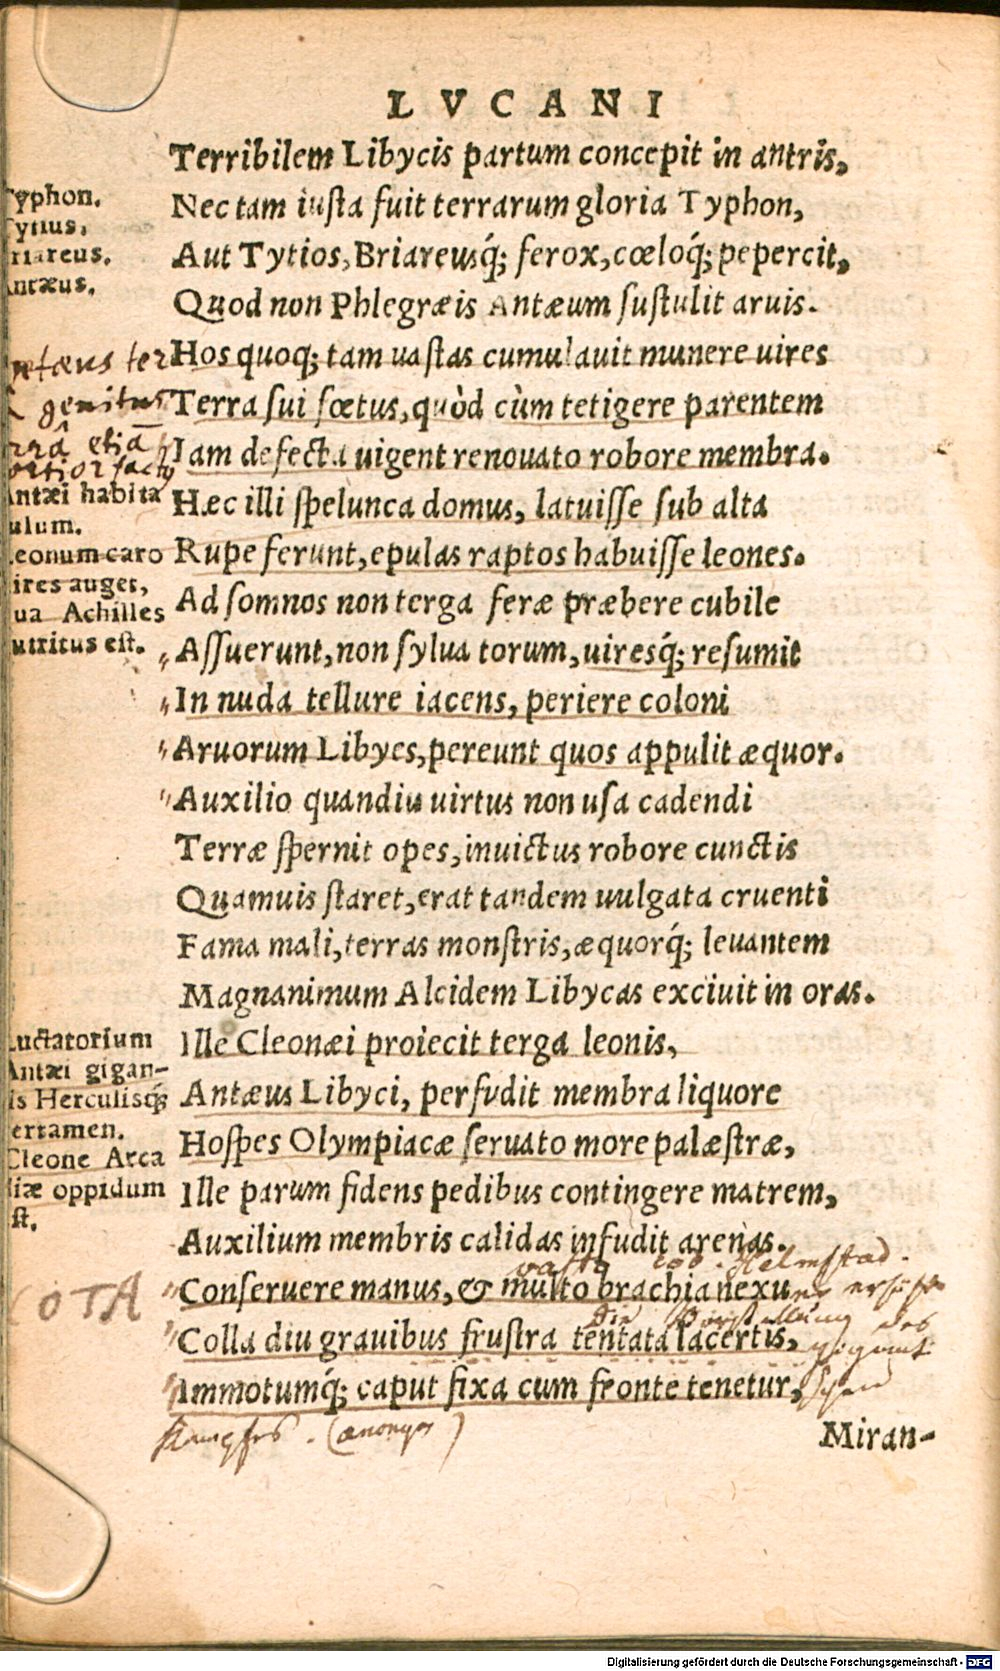 LVCANI
Terribilem Libycis partum concepit in antris,
Nec tam iusta fuit terrarum gloria Typhon,
Aut Tytios, Briareusq́; ferox, cœloq́; pepercit,
Quod non Phlegræis Antæum sustulit aruis.
Hos quoq; tam uastas cumulauit munere uires
Terra sui fœtus, quòd cùm tetigere parentem
Iam defecta uigent renouato robore membra.
Hæc illi spelunca domus, latuisse sub alta
Rupe ferunt, epulas raptos habuisse leones.
Ad somnos non terga feræ præbere cubile
Assuerunt, non sylua torum, uiresq́; resumit
In nuda tellure iacens, periere coloni
Aruorum Libyes, pereunt quos appulit æquor.
Auxilio quandiu uirtus non usa cadendi
Terræ spernit opes, inuictus robore cunctis
Quamuis staret, erat tandem uulgata cruenti
Fama mali, terras monstris, æquorq́; leuantem
Magnanimum Alcidem Libycas exciuit in oras.
Ille Cleonæi proiecit terga leonis,
Antæus Libyci, perfudit membra liquore
Hospes Olympiacæ seruato more palæstræ,
Ille parum fidens pedibus contingere matrem,
Auxilium membris calidas infudit arenas.
Conseruere manus, & multo brachia nexu
Colla diu grauibus frustra tentata lacertis,
Immotumq́; caput fixa cum fronte tenetur,
Miran-
Typhon.
Tytius.
Briareus.
Antæus.
Antæus ter
genitus
terrâ etiā
fortior
Antæi habita
culum.
Leonum caro
uires auget,
qua Achilles
nutritus est.
Luctatorium
Antæi gigan-
tis Herculisq́;
certamen.
Cleone Arca
diæ oppidum
est.
NOTA
cod. Helmstad.
die Vorstellung des
Kampfes. (anonym)
Digitalisierung gefördert durch die Deutsche Forschungsgemeinschaft - DFG